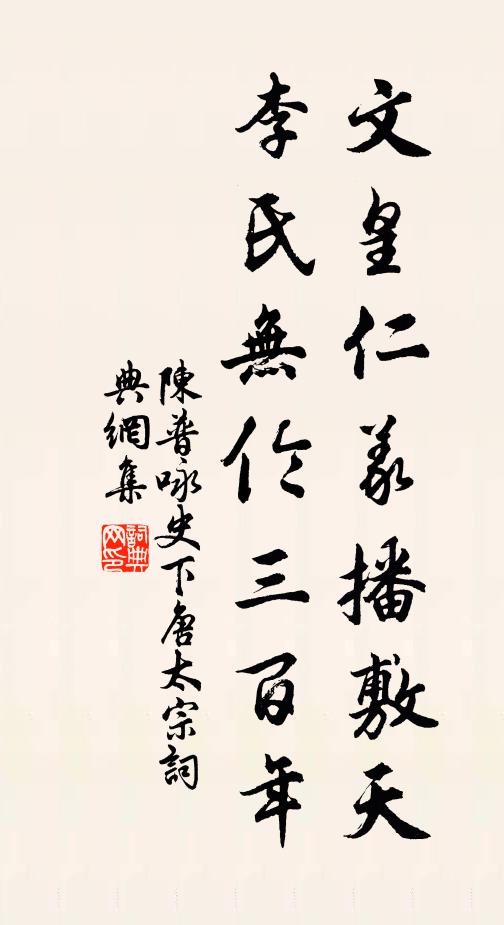 文皇仁義播敷天
李氏無倫三百年
陳普咏史下唐太宗詞
典網集
詞典網印